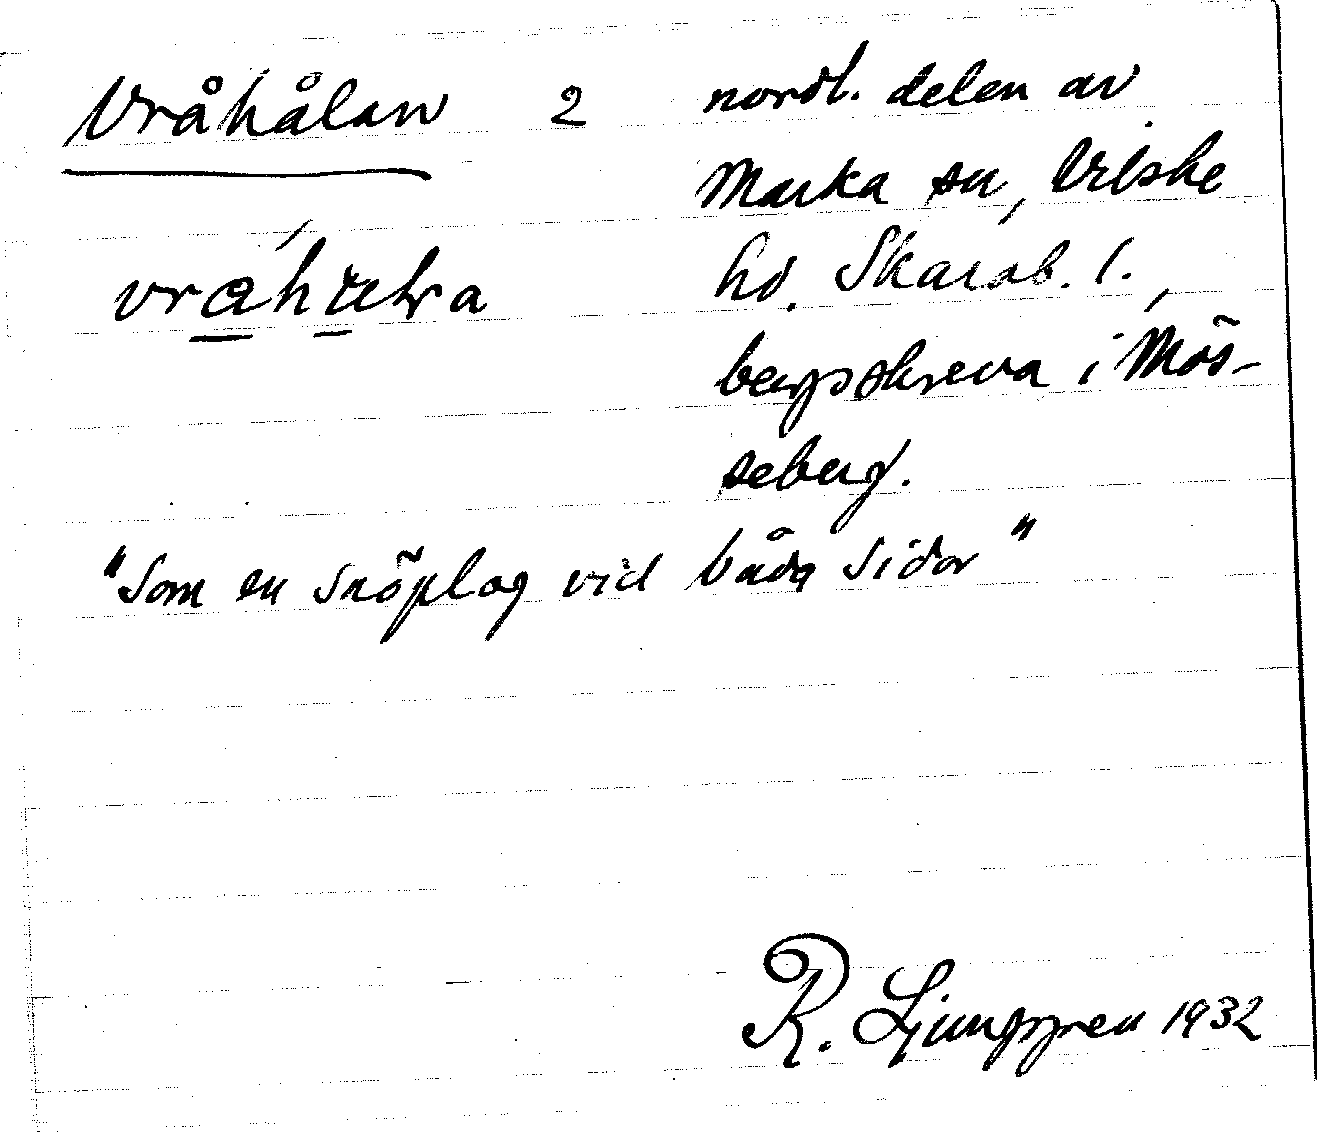 Vråhålan 2
nordl. delen av
Marka sn, Vilske
hd. Skarab. l.,
bergsskreva i Mös-
seberg.
"Som en snöplog vid båda sidor"
R. Ljunggren 1932